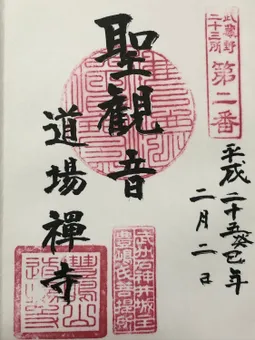 武蔵野
三十三所
第二番
聖観音
道場禪寺
平成二十五癸巳年
二月二日
石神井城主
豊嶋氏菩提所